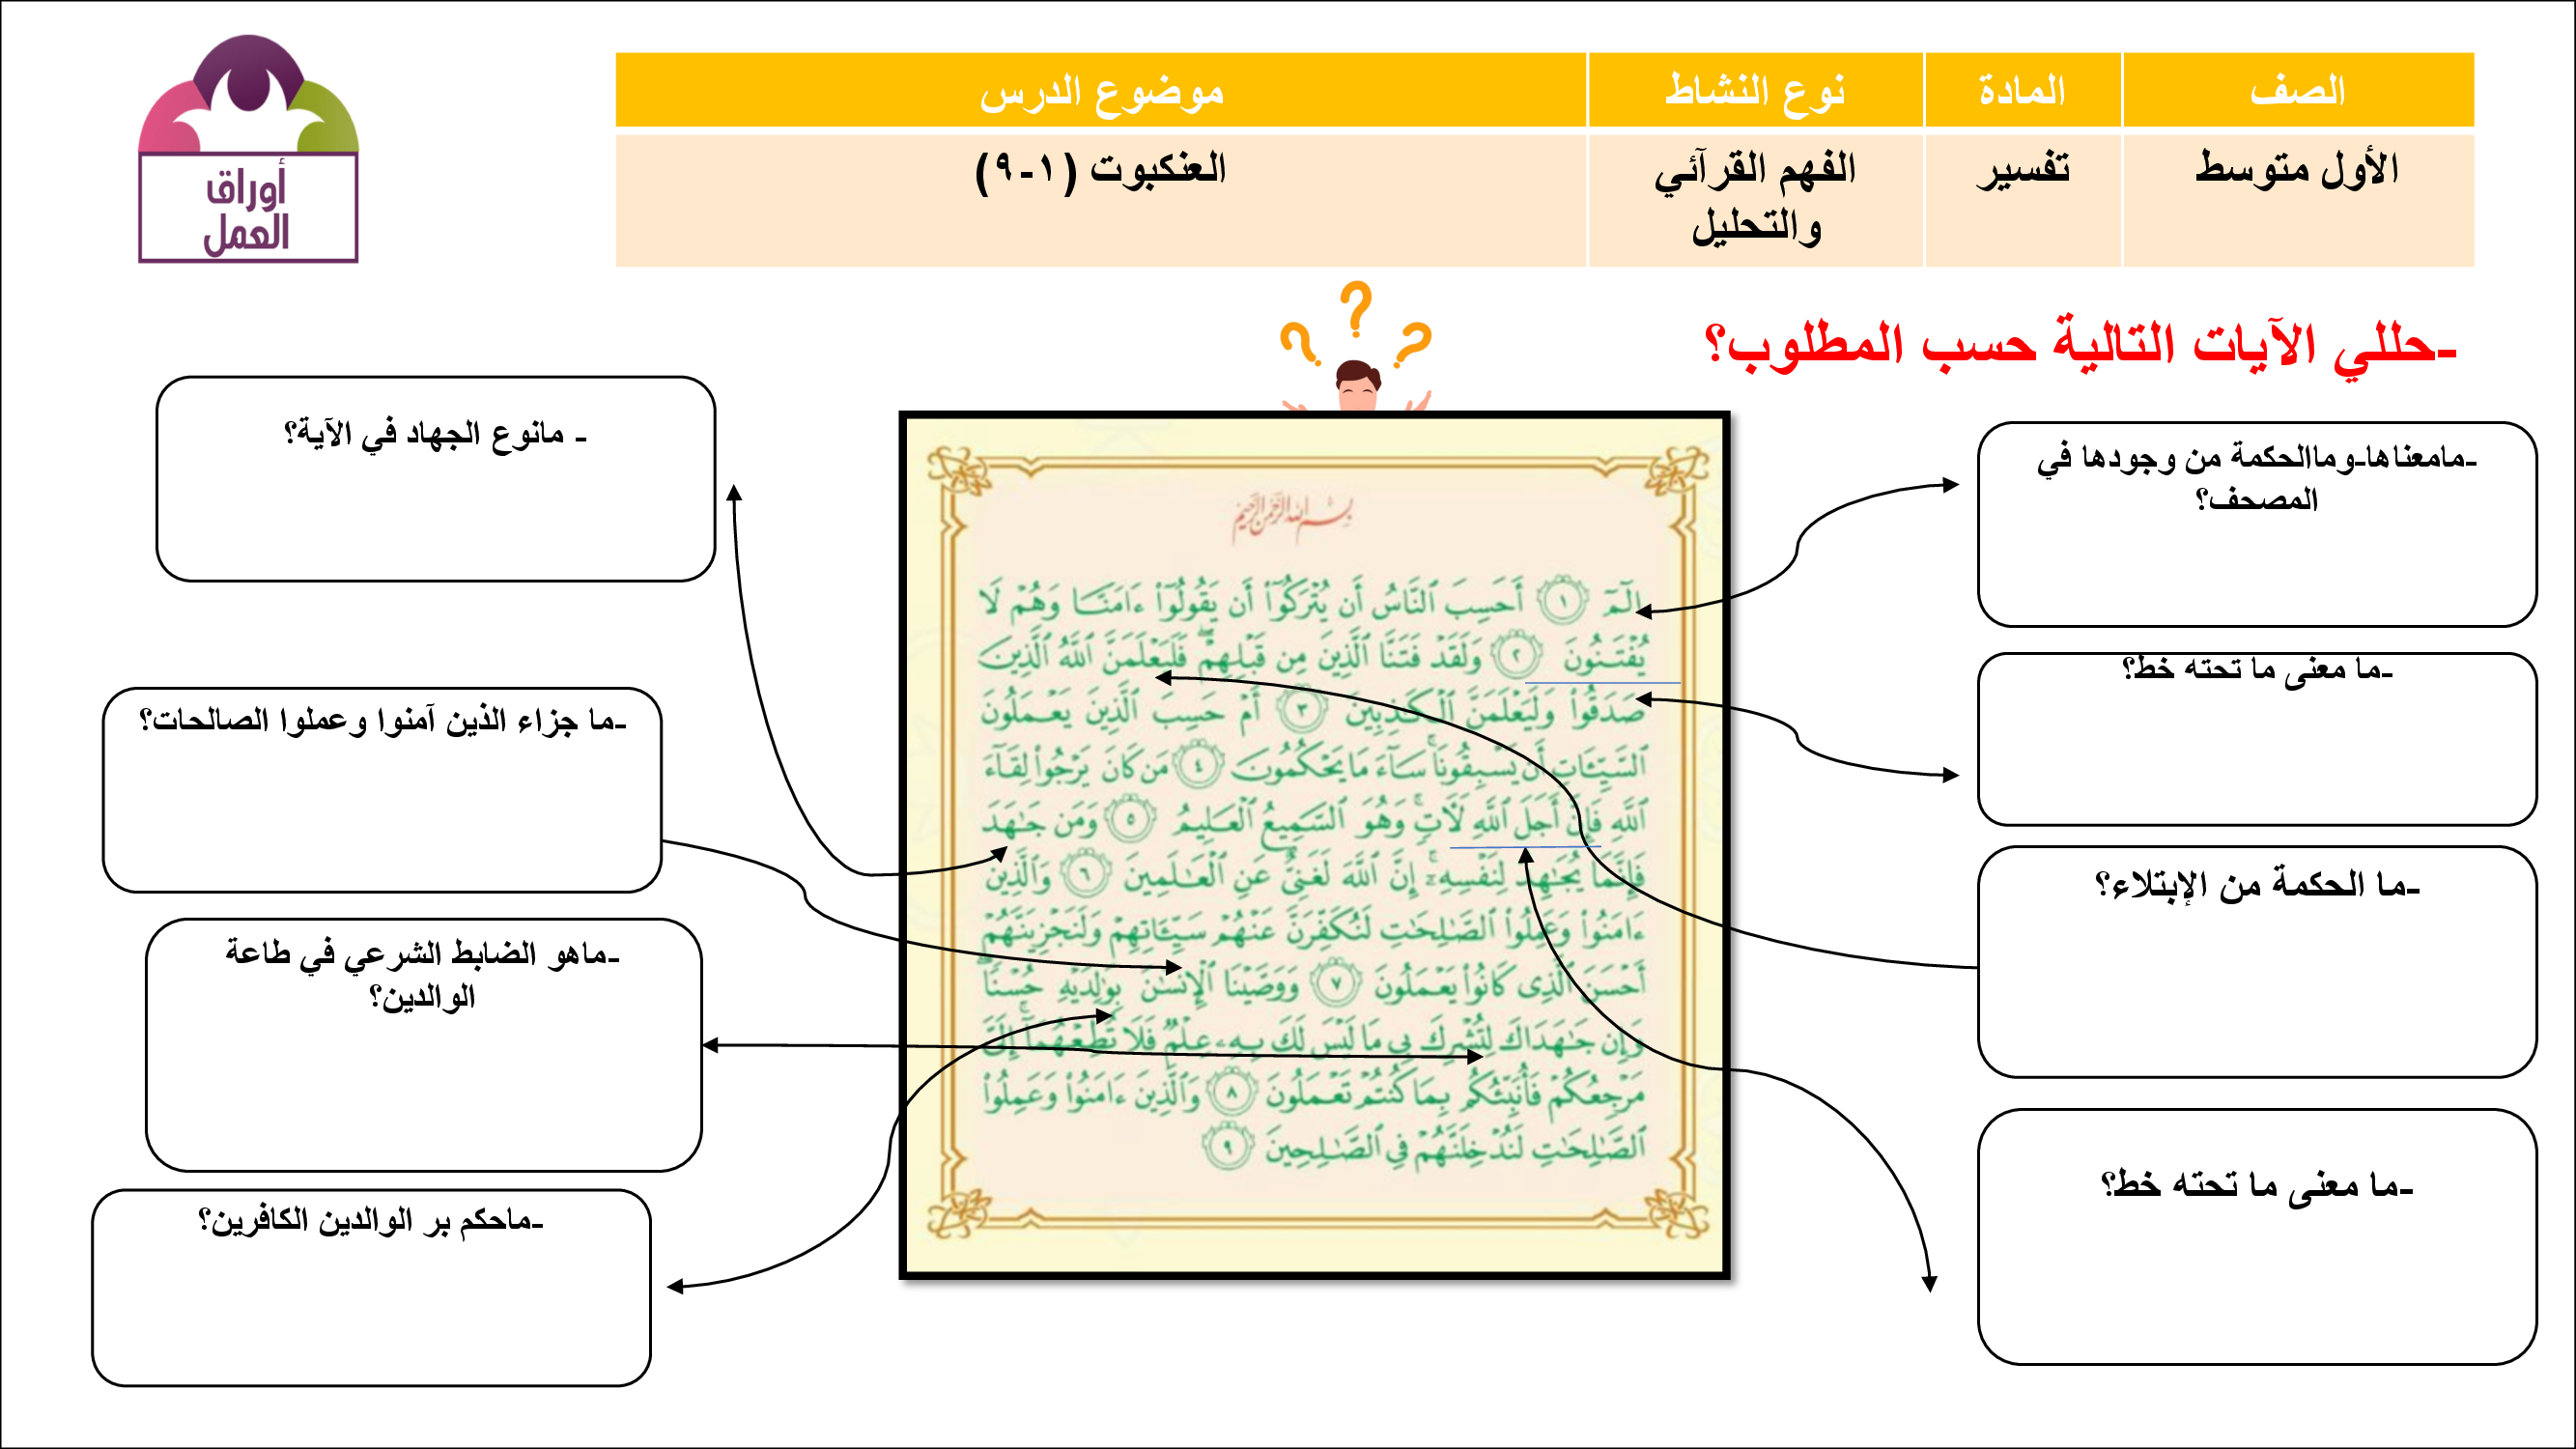 أوراق
العمل
الصف المادة نوع النشاط موضوع الدرس
الأول متوسط تفسير الفهم القرآني والتحليل العنكبوت (١-٩)
-حللي الآيات التالية حسب المطلوب؟
-مامعناها-وماالحكمة من وجودها في
المصحف؟
-ما معنى ما تحته خط؟
-ما الحكمة من الإبتلاء؟
-ما معنى ما تحته خط؟
بِسْمِ اللَّهِ الرَّحْمَٰنِ الرَّحِيمِ
الٓمٓ ١ أَحَسِبَ ٱلنَّاسُ أَن يُتْرَكُوٓا۟ أَن يَقُولُوٓا۟ ءَامَنَّا وَهُمْ لَا
يُفْتَنُونَ ٢ وَلَقَدْ فَتَنَّا ٱلَّذِينَ مِن قَبْلِهِمْ ۖ فَلَيَعْلَمَنَّ ٱللَّهُ ٱلَّذِينَ
صَدَقُوا۟ وَلَيَعْلَمَنَّ ٱلْكَٰذِبِينَ ٣ أَمْ حَسِبَ ٱلَّذِينَ يَعْمَلُونَ
ٱلسَّيِّـَٔاتِ أَن يَسْبِقُونَا ۚ سَآءَ مَا يَحْكُمُونَ ٤ مَن كَانَ يَرْجُوا۟ لِقَآءَ
ٱللَّهِ فَإِنَّ أَجَلَ ٱللَّهِ لَءَاتٍ ۚ وَهُوَ ٱلسَّمِيعُ ٱلْعَلِيمُ ٥ وَمَن جَٰهَدَ
فَإِنَّمَا يُجَٰهِدُ لِنَفْسِهِۦٓ ۚ إِنَّ ٱللَّهَ لَغَنِىٌّ عَنِ ٱلْعَٰلَمِينَ ٦ وَٱلَّذِينَ
ءَامَنُوا۟ وَعَمِلُوا۟ ٱلصَّٰلِحَٰتِ لَنُكَفِّرَنَّ عَنْهُمْ سَيِّـَٔاتِهِمْ وَلَنَجْزِيَنَّهُمْ
أَحْسَنَ ٱلَّذِى كَانُوا۟ يَعْمَلُونَ ٧ وَوَصَّيْنَا ٱلْإِنسَٰنَ بِوَٰلِدَيْهِ حُسْنًا ۖ
وَإِن جَٰهَدَاكَ لِتُشْرِكَ بِى مَا لَيْسَ لَكَ بِهِۦ عِلْمٌ فَلَا تُطِعْهُمَآ ۚ إِلَىَّ
مَرْجِعُكُمْ فَأُنَبِّئُكُم بِمَا كُنتُمْ تَعْمَلُونَ ٨ وَٱلَّذِينَ ءَامَنُوا۟ وَعَمِلُوا۟
ٱلصَّٰلِحَٰتِ لَنُدْخِلَنَّهُمْ فِى ٱلصَّٰلِحِينَ ٩
- مانوع الجهاد في الآية؟
-ما جزاء الذين آمنوا وعملوا الصالحات؟
-ماهو الضابط الشرعي في طاعة
الوالدين؟
-ماحكم بر الوالدين الكافرين؟